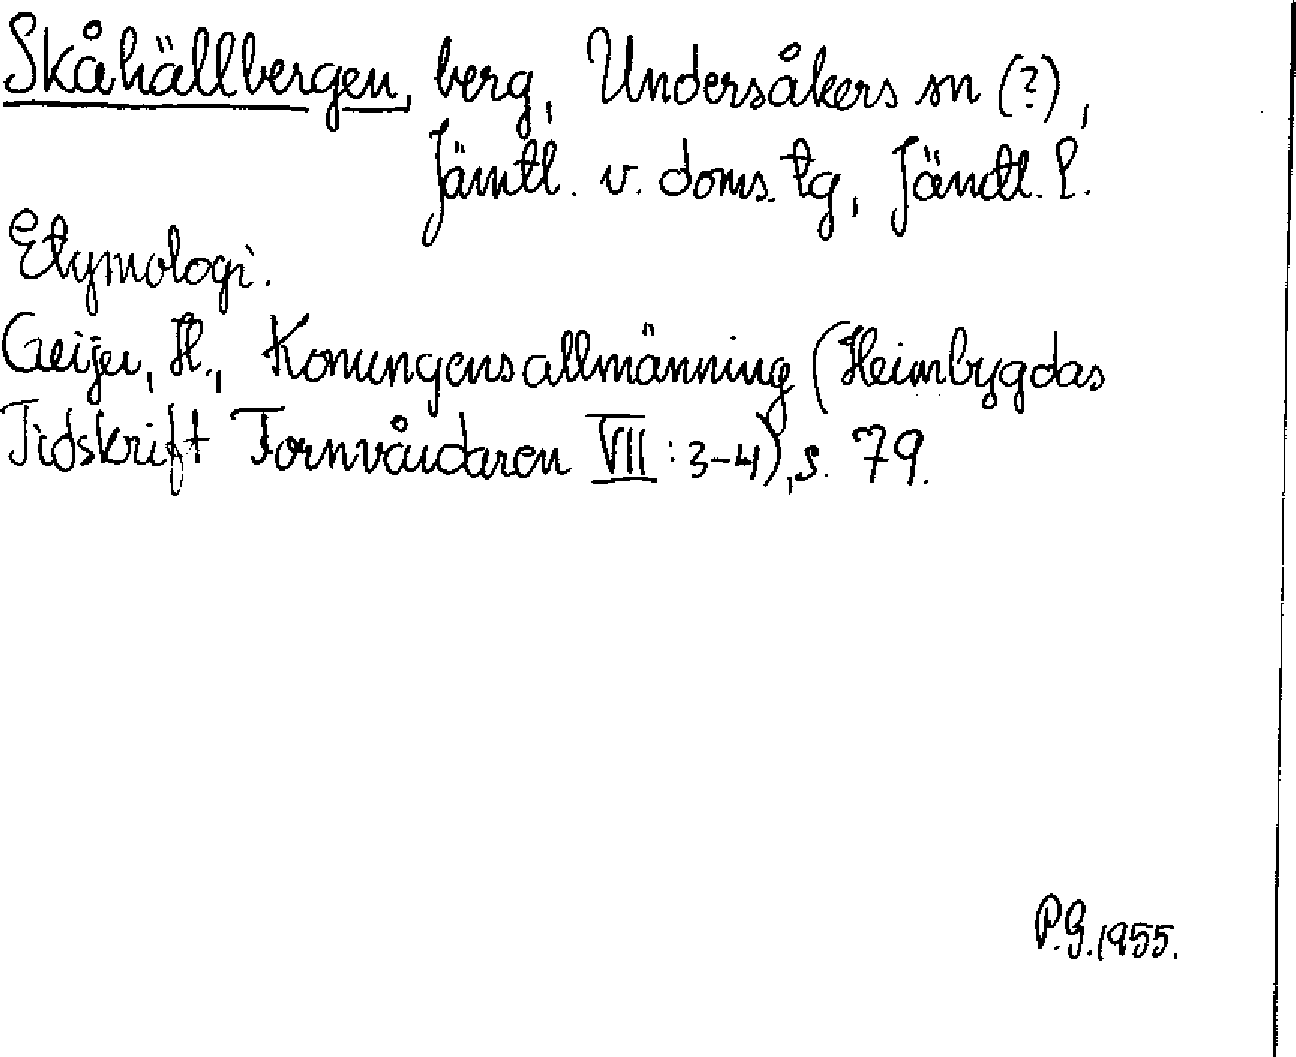 Skåhällbergen, berg, Undersåkers sn (?),
Jämtl. v. doms. tg, Jämtl. l.
Etymologi.
Geijer, H., Konungens allmänning (Heimbygdas
Tidskrift Fornvårdaren VII : 3-4), s. 79.
P.G. 1955.